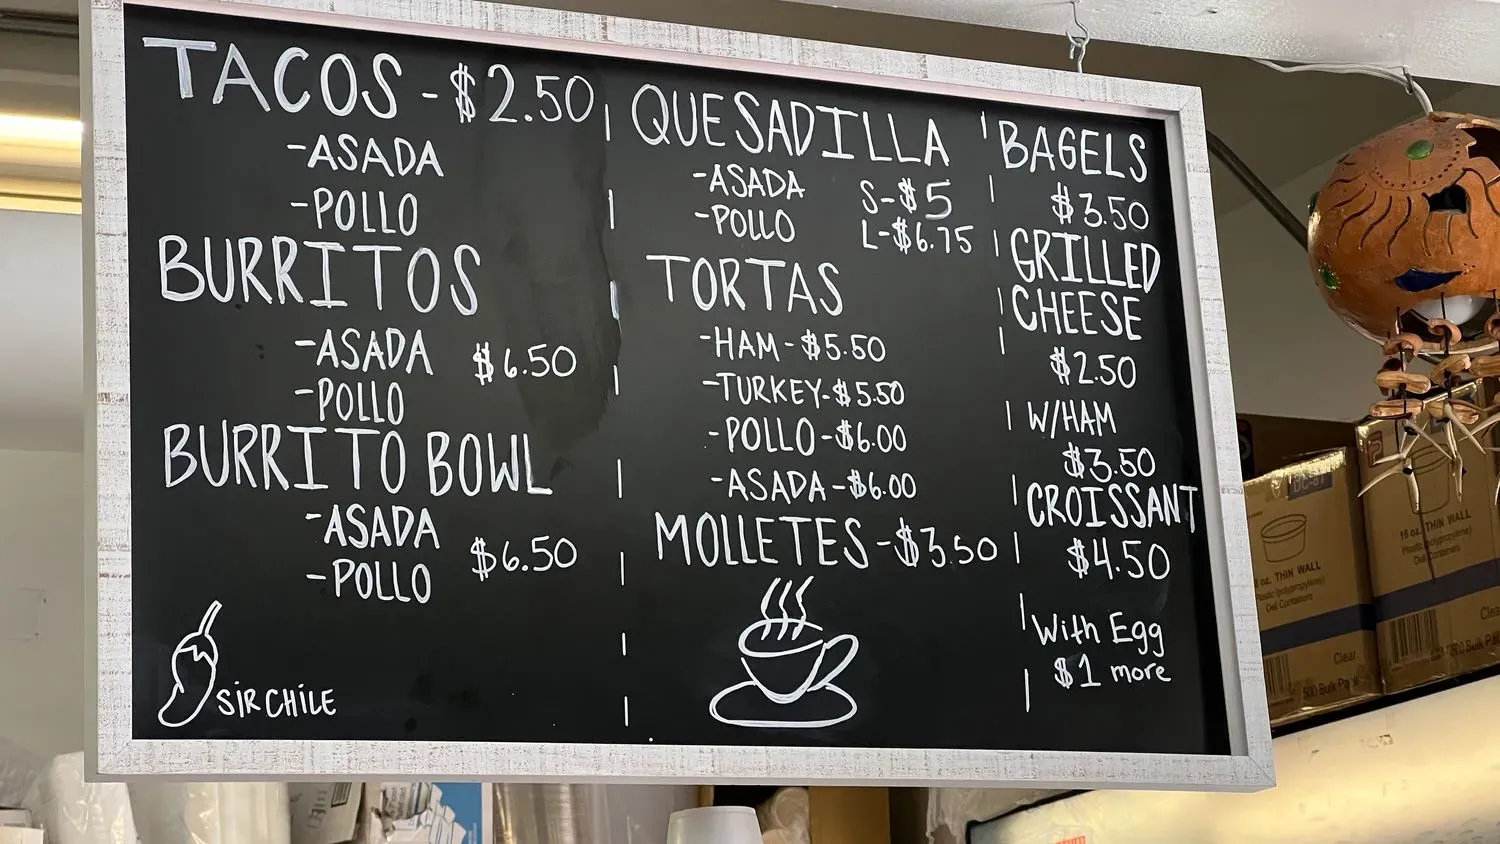 TACOS - $2.50
-ASADA
-POLLO
BURRITOS
-ASADA $6.50
-POLLO
BURRITO BOWL
-ASADA $6.50
-POLLO
SIR CHILE
QUESADILLA
-ASADA S-$5
-POLLO L-$6.75
TORTAS
-HAM-$5.50
-TURKEY-$5.50
-POLLO-$6.00
-ASADA-$6.00
MOLLETES-$3.50
BAGELS
$3.50
GRILLED
CHEESE
$2.50
W/HAM
$3.50
CROISSANT
$4.50
With Egg
$1 more
oz. THIN WALL
Deli Containers
Clear
500 Bulk Pa
16 oz. THIN WALL
Plastic (polypropylene)
Deli Containers
Clea
500 Bulk Pa